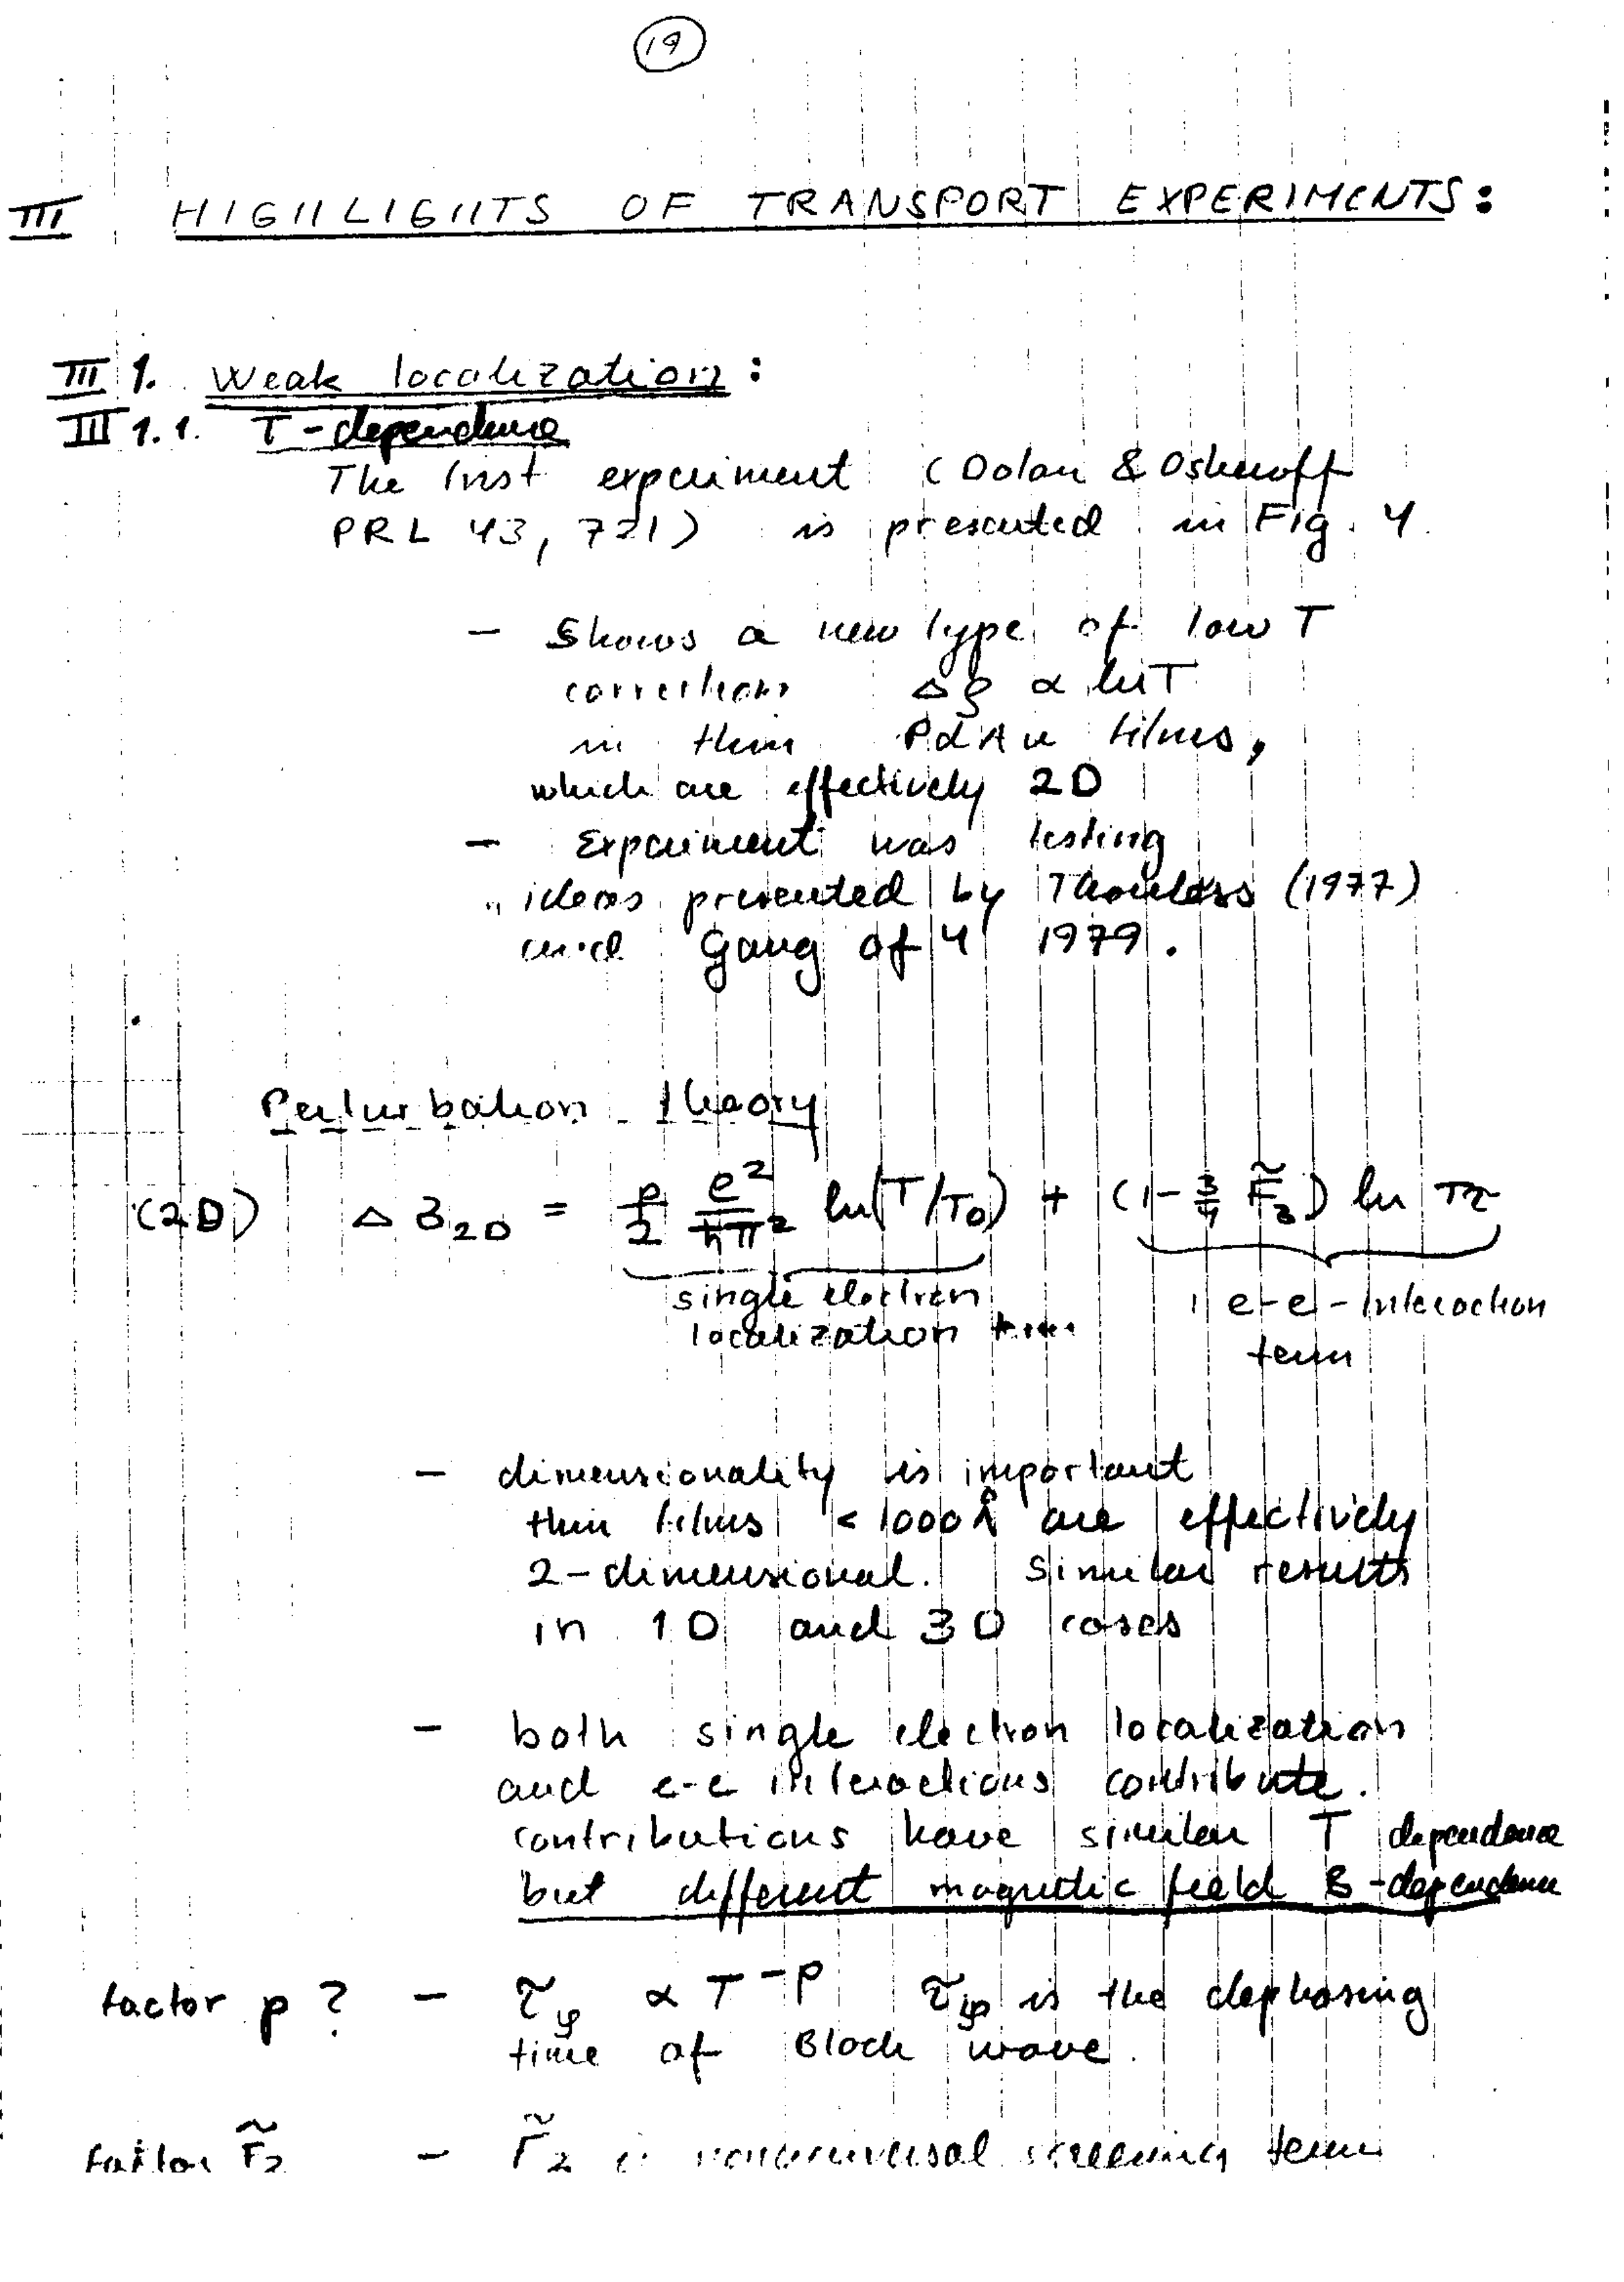 19
III HIGHLIGHTS OF TRANSPORT EXPERIMENTS:
III 1. Weak localization:
III 1.1. T-dependence
The first experiment (Dolan & Osheroff
PRL 43, 721) is presented in Fig. 4.
- Shows a new type of low T
correction Δρ ∝ lnT
in thin PdAu films,
which are effectively 2D
- Experiment was testing
ideas presented by Thouless (1977)
and Gang of 4 1979.
Perturbation theory
(2D) Δσ₂D = p/2 e²/ħπ² ln(T/T₀) + (1 - 3/4 F̃₃) ln Tτ
single electron e-e-interaction
localization term
- dimensionality is important
thin films < 1000Å are effectively
2-dimensional. Similar results
in 1D and 3D cases
- both single electron localization
and e-e interactions contribute.
contributions have similar T dependence
but different magnetic field B-dependence
factor p? - τφ ∝ T⁻ᵖ τφ is the dephasing
time of Bloch wave.
factor F̃₂ - F̃₂ is nonuniversal screening term